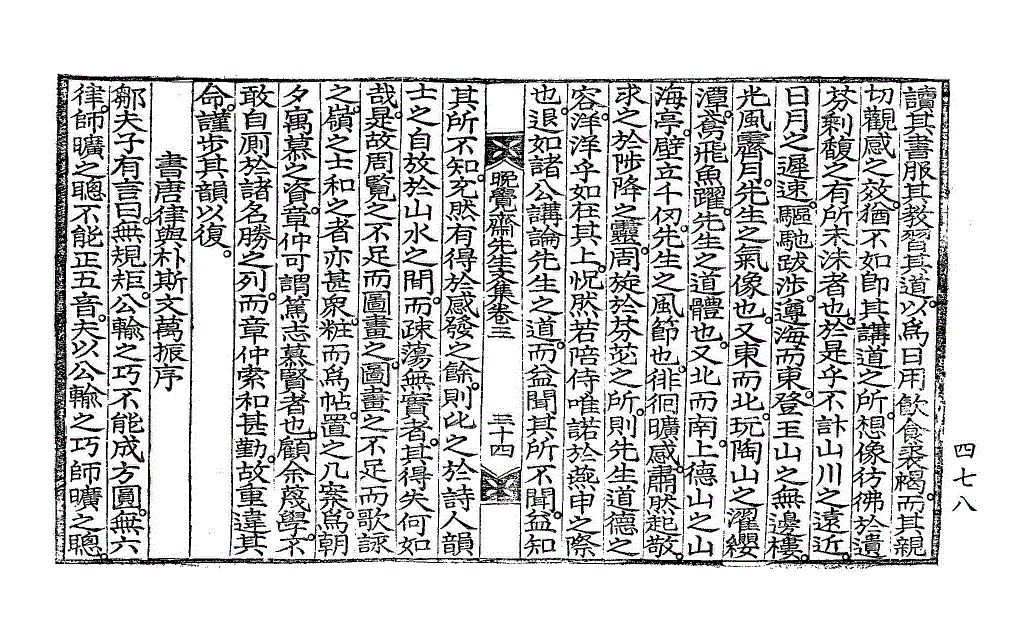 讀其書服其教習其道以爲日用飮食裘褐而其親
切觀感之效猶不如卽其講道之所想像彷彿於遺
芬剩馥之有所未沬者也於是乎不計山川之遠近
日月之遲速驅馳跋涉遵海而東登玉山之無邊樓
光風霽月先生之氣像也又東而北玩陶山之濯纓
潭鳶飛魚躍先生之道體也又北而南上德山之山
海亭壁立千仞先生之風節也徘徊曠感肅然起敬
求之於陟降之靈周旋於芬苾之所則先生道德之
容洋洋乎如在其上怳然若陪侍唯諾於燕申之際
也退如諸公講論先生之道而益聞其所不聞益知
晩覺齋先生文集卷三 三十四
其所不知充然有得於感發之餘則比之於詩人韻
士之自放於山水之間而疎蕩無實者其得失何如
哉是故周覽之不足而圖畫之圖畫之不足而歌詠
之嶺之士和之者亦甚衆粧而爲帖置之几案爲朝
夕寓慕之資章仲可謂篤志慕賢者也顧余蔑學不
敢自厠於諸名勝之列而章仲索和甚勤故重違其
命謹步其韻以復
書唐律與朴斯文萬振序
鄒夫子有言曰無規矩公輸之巧不能成方圓無六
律師曠之聰不能正五音夫以公輸之巧師曠之聰
四七八